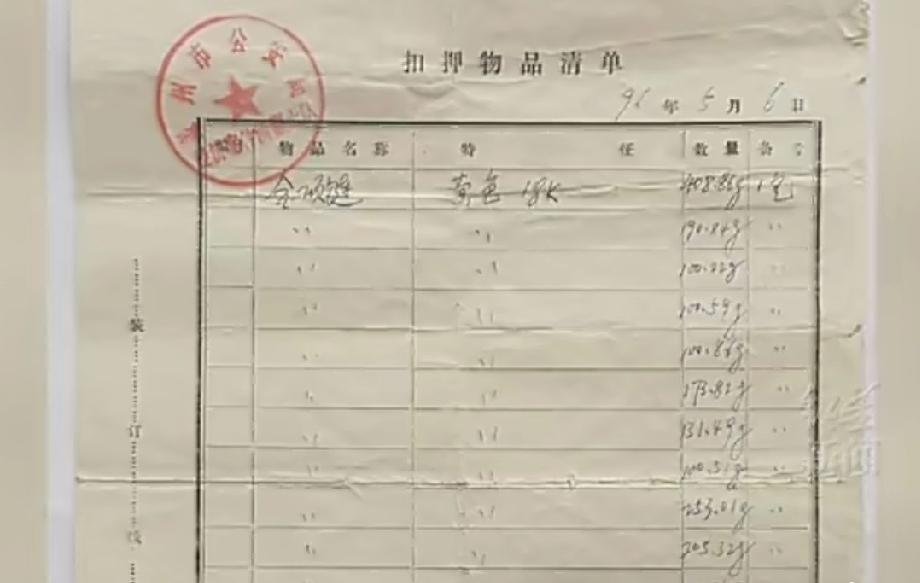 扣押物品清单
91年5月6日
州市公安局
物品名称 特 征 数量 备
金项链 黄色 18K 408.86g 1包
〃 〃 190.84g 〃
〃 〃 100.22g 〃
〃 〃 100.59g 〃
〃 〃 100.86g 〃
〃 〃 173.82g 〃
〃 〃 131.49g 〃
〃 〃 100.51g 〃
〃 〃 253.01g 〃
〃 〃 205.32g 〃
装
订
线